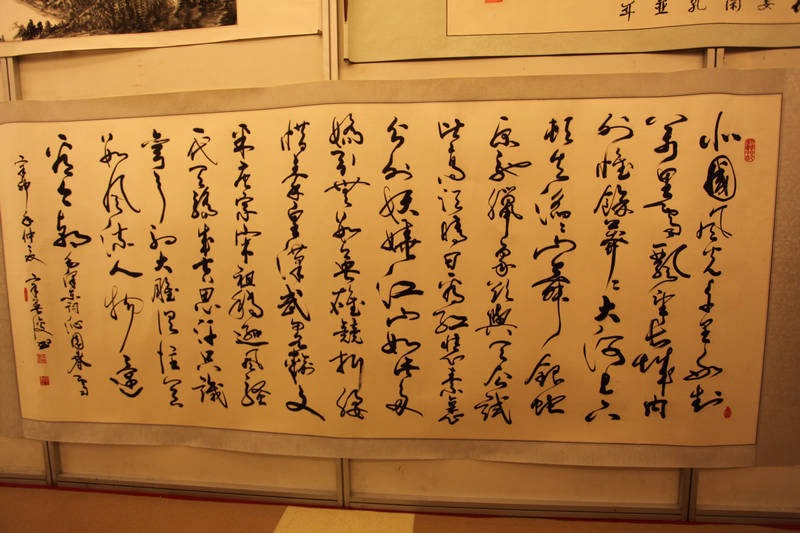 北國風光千里冰封
萬里雪飄望長城內
外惟餘莽〻大河上下
頓失滔〻山舞銀蛇
原馳臘象欲與天公試
比高須晴日看紅裝素裹
分外妖嬈江山如此多
嬌引無數英雄競折腰
惜秦皇漢武略輸文
采唐宗宋祖稍遜風騷
一代天驕成吉思汗只識
彎弓射大雕俱往矣
數風流人物還
看今朝 毛澤東詞沁園春雪